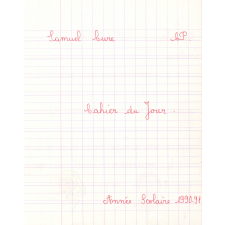 Samuel Cure CP.
Cahier du Jour.
Année Scolaire 1990.91